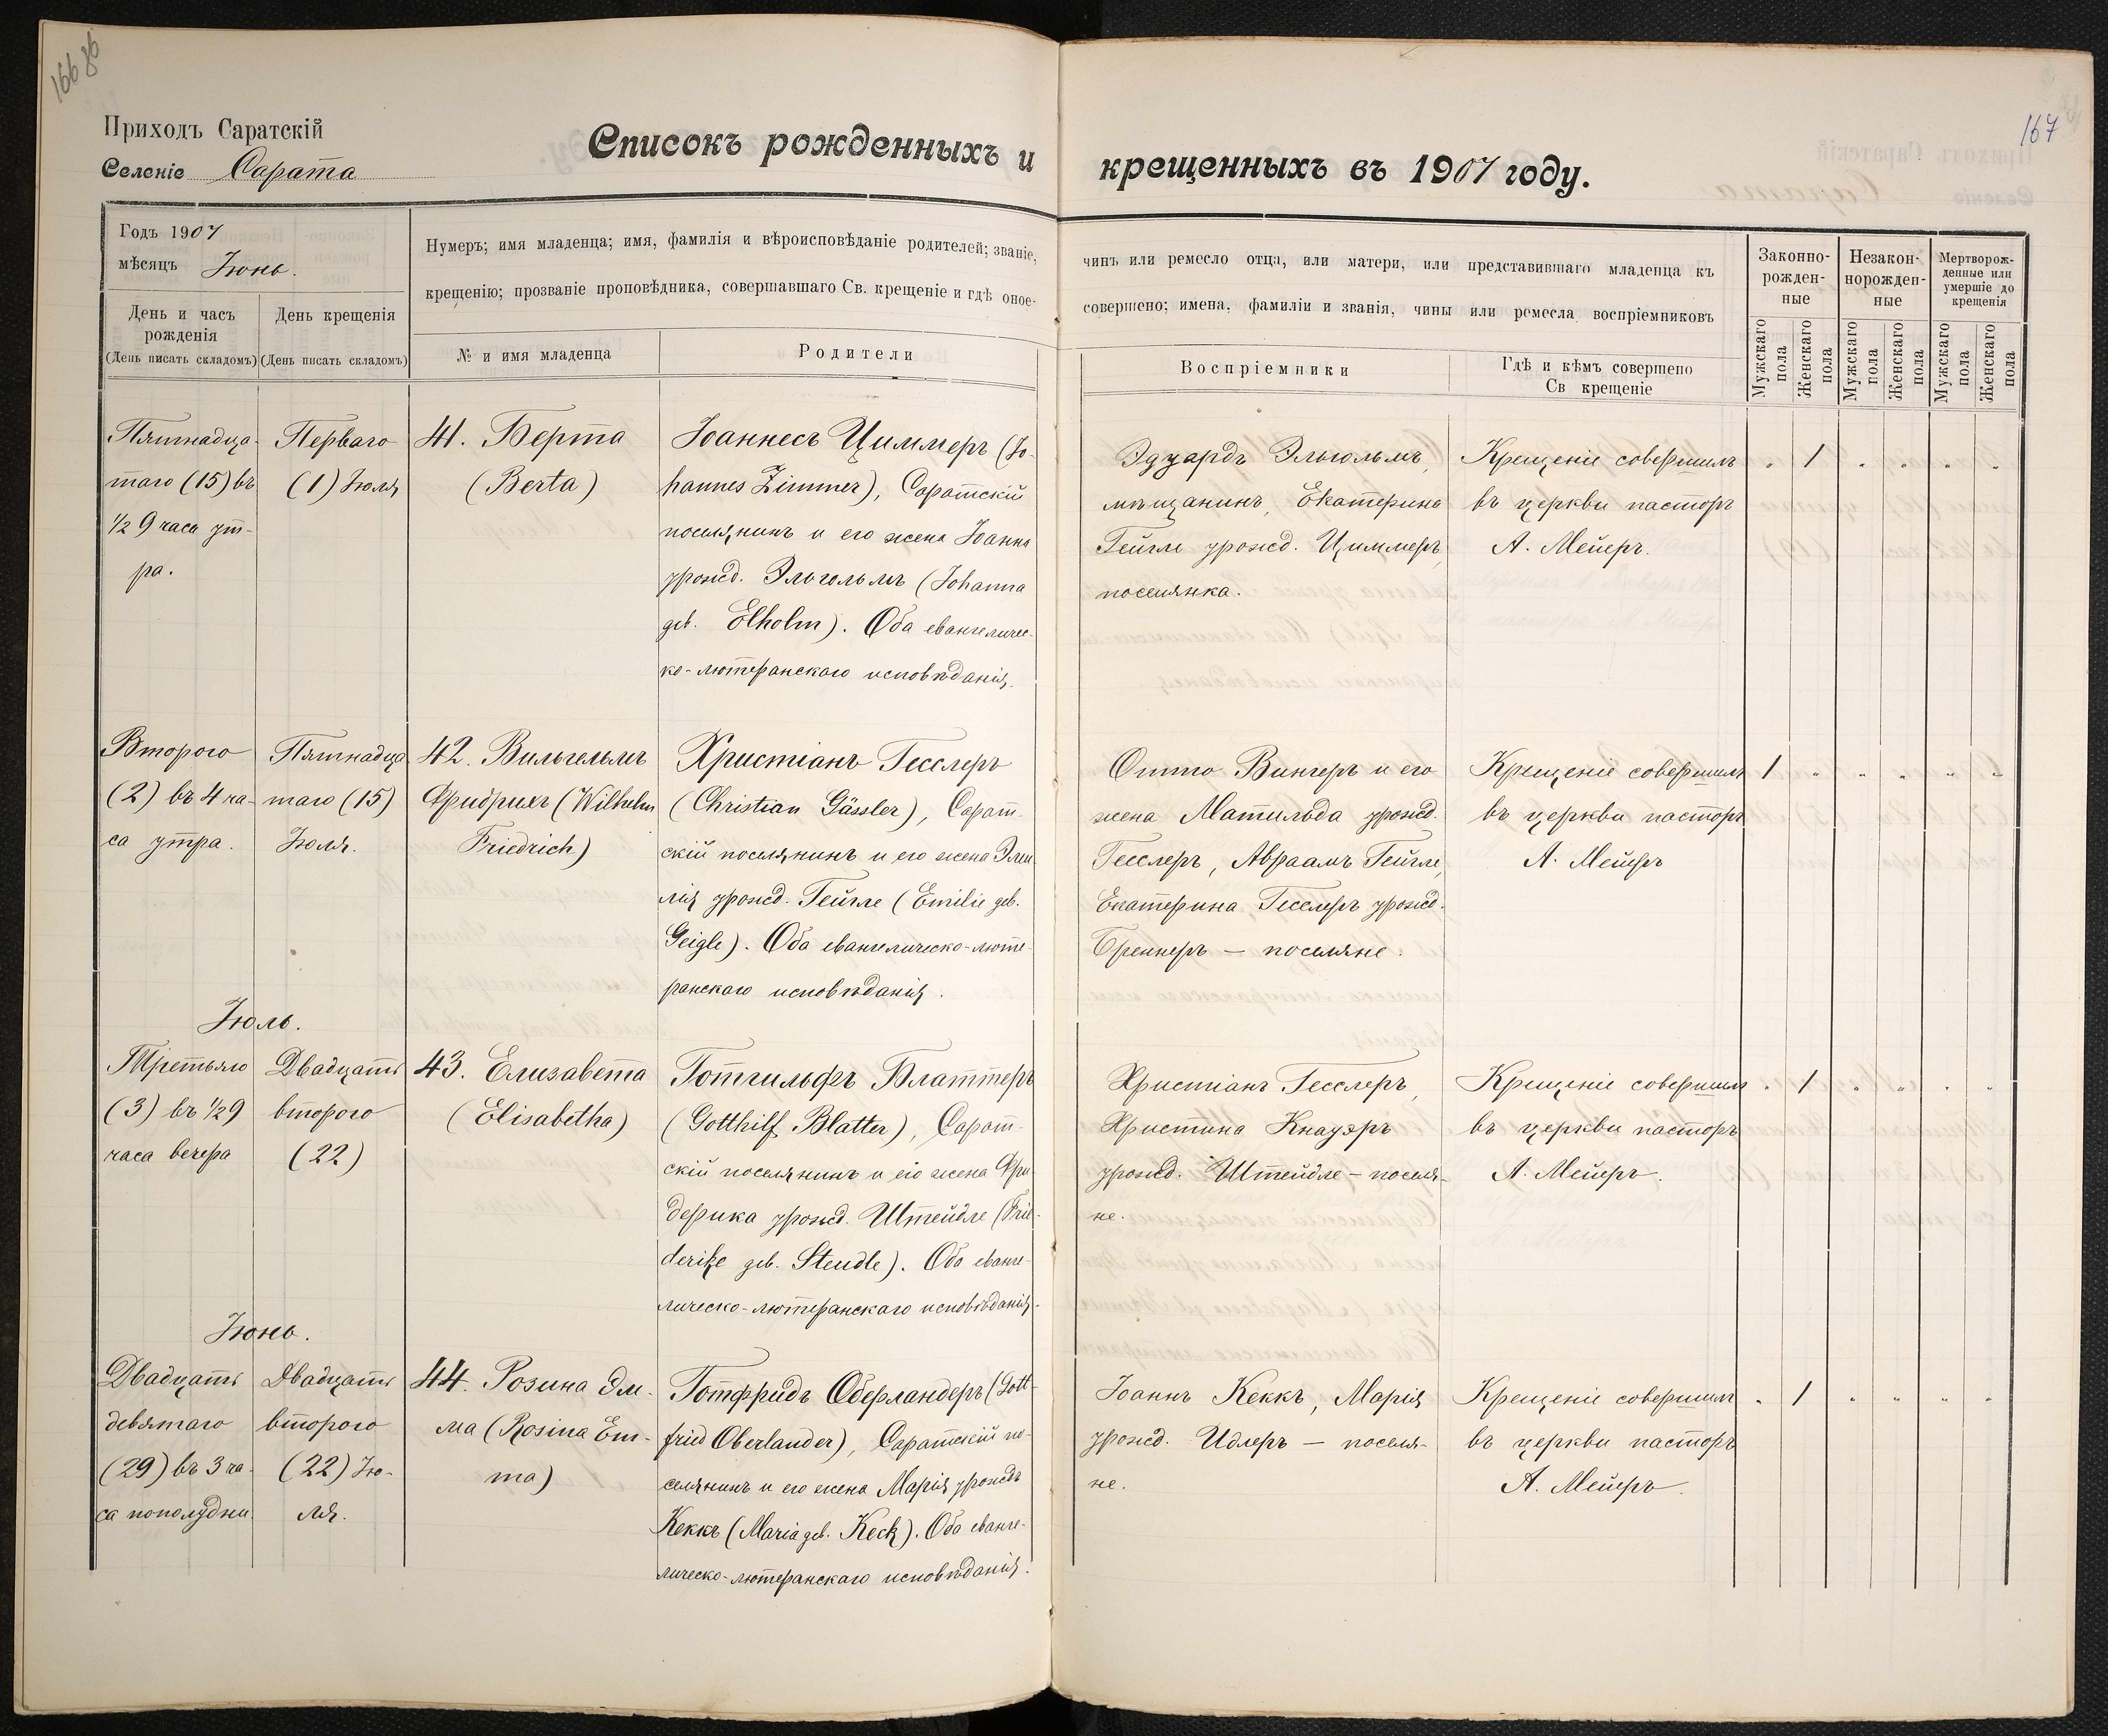 166 86
167
Приходъ Саратскій
Селеніе Сарата
Списокъ рожденныхъ и
крещенныхъ въ 1907 году.
Годъ 1907
мѣсяцъ Іюнь.
День и часъ
рожденія
(День писать складомъ)
День крещенія
(День писать складомъ)
Нумеръ; имя младенца; имя, фамилія и вѣроисповѣданіе родителей; званіе,
крещенію; прозваніе проповѣдника, совершавшаго Св. крещеніе и гдѣ оное-
№ и имя младенца
Родители
чинъ или ремесло отца, или матери, или представившаго младенца къ
совершено; имена, фамиліи и званія, чины или ремесла воспріемниковъ
Воспріемники
Гдѣ и кѣмъ совершено
Св крещеніе
Законно-
рожден-
ные
Незакон-
норожден-
ные
Мертворож-
денные или
умершіе до
крещенія
Мужскаго
пола
Женскаго
пола
Мужскаго
пола
Женскаго
пола
Мужскаго
пола
Женскаго
пола
Пятнадца-
таго (15) въ
1/2 9 часа ут-
ра.
Перваго
(1) Іюля
41. Берта
(Berta)
Іоаннесъ Циммеръ (Jo-
hannes Zimmer), Саратскій
поселянинъ и его жена Іоанна
урожд. Эльгольмъ (Johanna
geb. Elholm). Оба евангеличес-
ко-лютеранскаго исповѣданія.
Эдуардъ Эльгольмъ,
мѣщанинъ, Екатерина
Гейгле урожд. Циммеръ,
поселянка.
Крещеніе совершилъ
въ церкви пасторъ
А. Мейеръ.
" 1 " " " "
Второго
(2) въ 4 ча-
са утра.
Пятнадца-
таго (15)
Іюля.
42. Вильгельмъ
Фридрихъ (Wilhelm
Friedrich)
Христіанъ Гесслеръ
(Christian Gässler), Сарат-
скій поселянинъ и его жена Эми-
лія урожд. Гейгле (Emilie geb.
Geigle). Оба евангелическо-люте-
ранскаго исповѣданія.
Отто Вингеръ и его
жена Матильда урожд.
Гесслеръ, Авраамъ Гейгле,
Екатерина Гесслеръ урожд.
Бреннеръ — поселяне.
Крещеніе совершилъ
въ церкви пасторъ
А. Мейеръ
1 " " " " "
Іюль.
Третьяго
(3) въ 1/2 9
часа вечера
Двадцать
второго
(22)
43. Елизавета
(Elisabetha)
Готгильфъ Блаттеръ
(Gotthilf Blatter), Сарат-
скій поселянинъ и его жена Фри-
дерика урожд. Штейдле (Frie-
derike geb. Steudle). Оба еванге-
лическо-лютеранскаго исповѣданія.
Христіанъ Гесслеръ,
Христина Кнауэръ
урожд. Штейдле — поселя-
не.
Крещеніе совершилъ
въ церкви пасторъ
А. Мейеръ.
" 1 " " " "
Іюнь.
Двадцать
девятаго
(29) въ 3 ча-
са пополудни.
Двадцать
второго
(22) Ію-
ля.
44. Розина Эм-
ма (Rosina Em-
ma)
Готфридъ Оберландеръ (Gott-
fried Oberlander), Саратскій по-
селянинъ и его жена Марія урождъ
Кеккъ (Maria geb. Keck). Оба еванге-
лическо-лютеранскаго исповѣданія.
Іоаннъ Кеккъ, Марія
урожд. Идлеръ — поселя-
не.
Крещеніе совершилъ
въ церкви пасторъ
А. Мейеръ.
" 1 " " " "